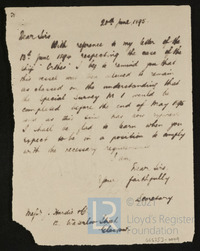 20th June 1895
Dear Sirs
With reference to my letter of the
18th June 1890 respecting the case of the
" I beg to remind you that
this vessel was allowed to remain
as classed on the understanding that
the Special Survey No 1 would be
completed before the end of May 1895
and as this time has now expired
I shall be glad to learn when you
expect to be in a position to comply
with the necessary requirements
I am
Dear Sirs
Yours faithfully
Secretary
Messrs
Glasgow
© 2021
Lloyd's Register
Foundation